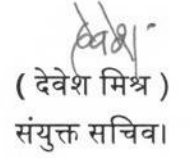 देवेश
( देवेश मिश्र )
संयुक्त सचिव।